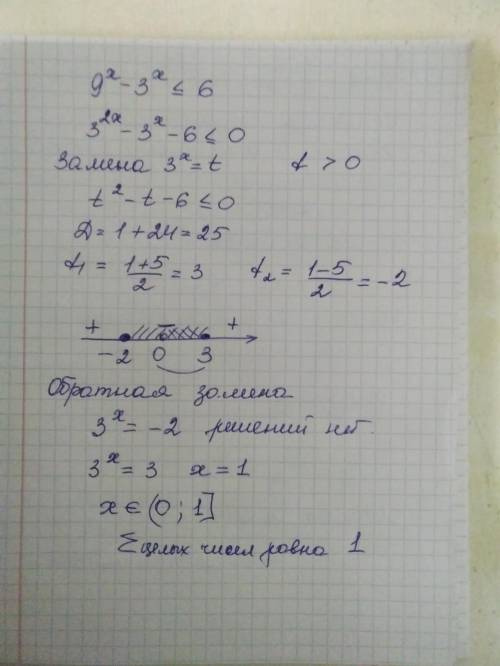 9^x - 3^x ≤ 6
3^2x - 3^x - 6 ≤ 0
Замена 3^x = t t > 0
t^2 - t - 6 ≤ 0
Д = 1 + 24 = 25
t₁ = (1+5)/2 = 3 t₂ = (1-5)/2 = -2
+ - +
-2 0 3
Обратная замена
3^x = -2 решений нет.
3^x = 3 x = 1
x ∈ (0; 1]
Σ целых чисел равна 1